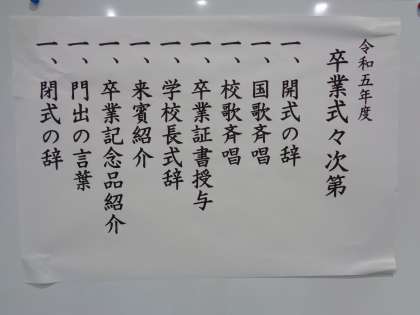 令和五年度
卒業式々次第
一、開式の辞
一、国歌斉唱
一、校歌斉唱
一、卒業証書授与
一、学校長式辞
一、来賓紹介
一、卒業記念品紹介
一、門出の言葉
一、閉式の辞